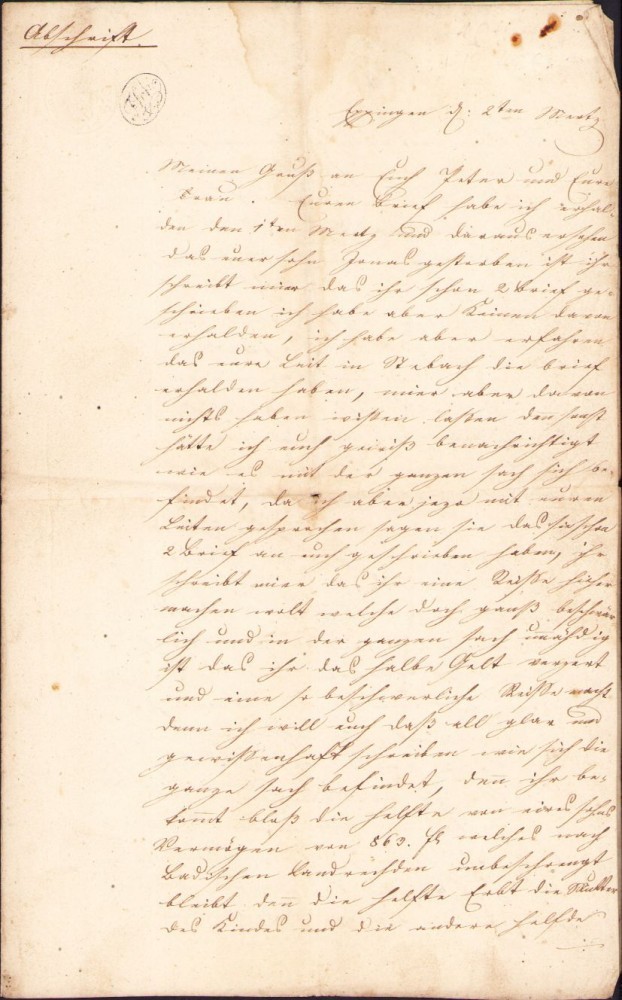 Abschrift.
Eppingen d: 2ten Mertz
Meinen Gruß an Euch Peter und Eure
Frau. Euren Brief habe ich erhal-
den den 1ten Mertz und daraus ersehen
das euer sohn Jonas gestorben ist ihr
schreibt mier das ihr schon 2 Brief ge-
schrieben ich habe aber Keinen davon
erhalden, ich habe aber erfahren
das eure Leit in Stebach die brief
erhalden haben, mier aber davon
nichts haben wissen lassen den sonst
hätte ich euch gewiß benachrichtigt
wie es mit der ganzen sach sich be-
findet, da ich aber jezo mit euren
Leiten gesprochen sagen sie das sie schon
2 Brief an euch geschrieben haben, ihr
schreibt mier das ihr eine Reisse hieher
machen wolt welche doch ganß beschwer
lich und in der ganzen sach unöhdig
ist das ihr das halbe Gelt verzert
und eine so beschwerliche Reisse macht
denn ich will euch daß all glar und
gewissenhaft schreiben wie sich die
ganze sach befindet, den ihr be-
komt bloß die helfte von eires sohns
Vermögen von 863. fl welches nach
Badischen Landrechden unbeschrengt
bleibt den die helfte Erbt die Mutter
des Kindes und die andere helfde